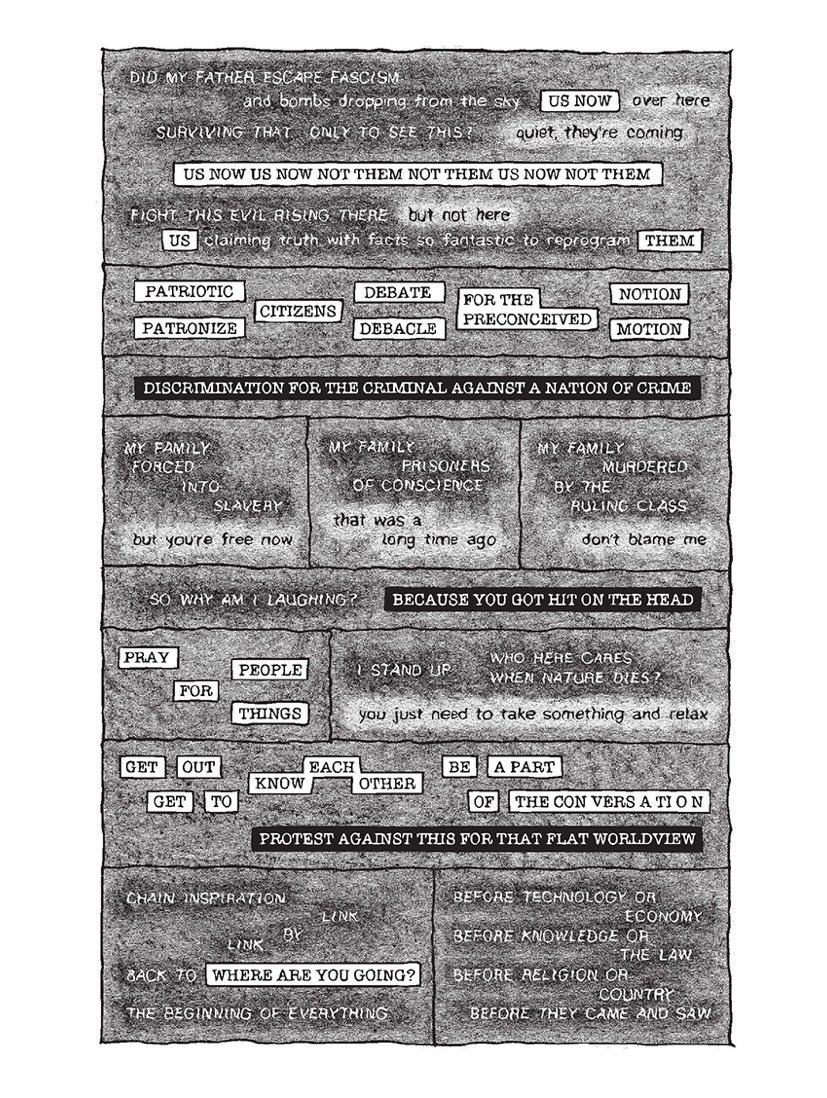 DID MY FATHER ESCAPE FASCISM
and bombs dropping from the sky US NOW over here
SURVIVING THAT ONLY TO SEE THIS? quiet, they're coming
US NOW US NOW NOT THEM NOT THEM US NOW NOT THEM
FIGHT THIS EVIL RISING THERE but not here
US claiming truth with facts so fantastic to reprogram THEM
PATRIOTIC DEBATE FOR THE NOTION
CITIZENS
PATRONIZE DEBACLE PRECONCEIVED MOTION
DISCRIMINATION FOR THE CRIMINAL AGAINST A NATION OF CRIME
MY FAMILY
FORCED
INTO
SLAVERY
but you're free now
MY FAMILY
PRISONERS
OF CONSCIENCE
that was a
long time ago
MY FAMILY
MURDERED
BY THE
RULING CLASS
don't blame me
SO WHY AM I LAUGHING? BECAUSE YOU GOT HIT ON THE HEAD
PRAY
PEOPLE
FOR
THINGS
I STAND UP
WHO HERE CARES
WHEN NATURE DIES?
you just need to take something and relax
GET OUT EACH BE A PART
KNOW OTHER
GET TO OF THE CON VERS A TI O N
PROTEST AGAINST THIS FOR THAT FLAT WORLDVIEW
CHAIN INSPIRATION
LINK
BY
LINK
BACK TO WHERE ARE YOU GOING?
THE BEGINNING OF EVERYTHING
BEFORE TECHNOLOGY OR
ECONOMY
BEFORE KNOWLEDGE OR
THE LAW
BEFORE RELIGION OR
COUNTRY
BEFORE THEY CAME AND SAW